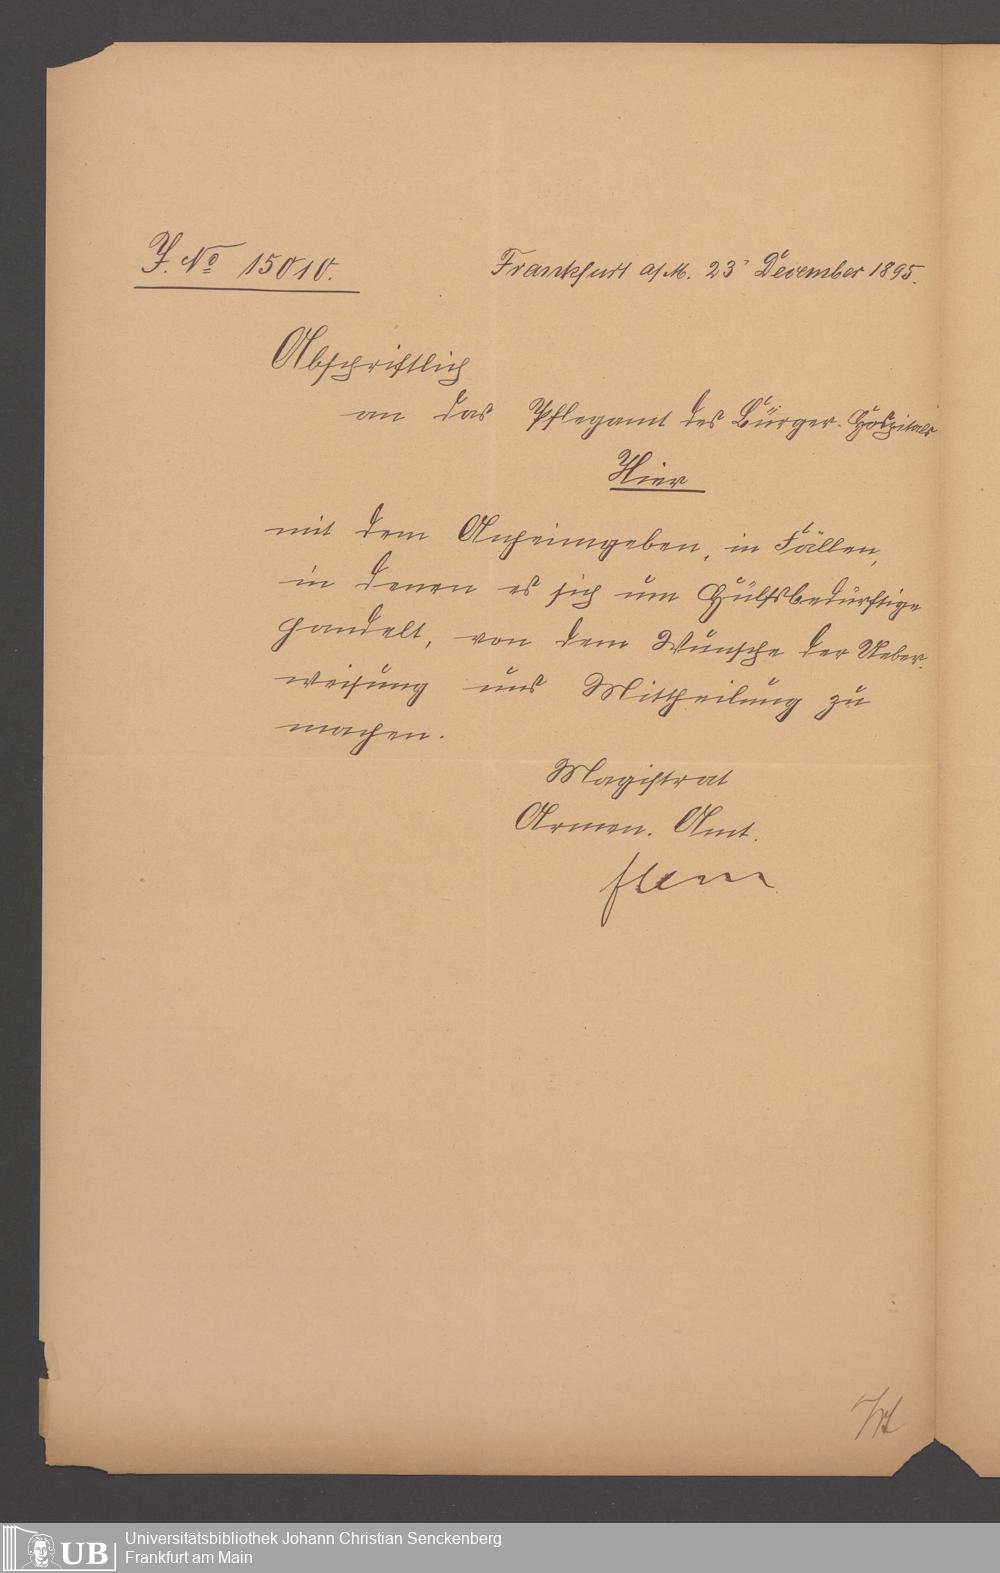 J. No 15010.
Frankfurt a/M. 23 December 1895.
Abschriftlich
an das Pflegamt des Bürger-Hospitals
Hier
mit dem Anheimgeben, in Fällen,
in denen es sich um Hülfsbedürftige
handelt, von dem Wunsche der Ueber-
weisung uns Mittheilung zu
machen.
Magistrat
Armen-Amt.
Universitätsbibliothek Johann Christian Senckenberg
Frankfurt am Main
UB